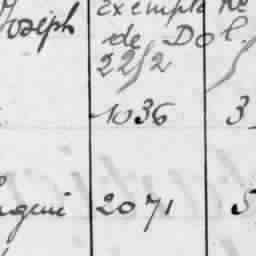 Joseph exempte Ne
de Dol.
22/2
1036 3
ugeni 2071 5